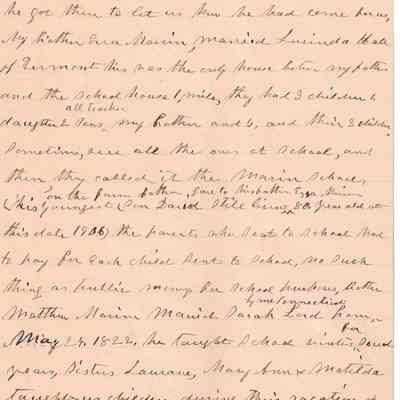 he got there to let us know he had come home,
My brother Ezra Marvin, married Lucinda Hale
of Vermont his was the only house between my fathers
and the school house 1/ mile, they had 3 children 1
all teachers
daughter 2 sons, my Father and 5, and their 3 children
sometimes, were all the ones at school, and
then they called it the Marvin School,
on the farm father gave to his father Ezra Marvin
(his youngest Son David still lives, 80 years old at
this date 1906) the parents who sent to school had
to pay for each child sent to school, no such
thing as public money for school purposes, brother
Lyme Connecticut
Matthew Marvin Married Sarah Lord from
for
May 29, 1822, he taught School winters, several
years, Sisters Laurane, Mary Ann & Matilda
taught children during their vacation